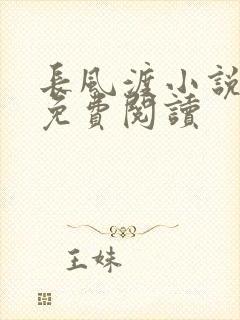 長風渡小說
免費閱讀
王妹